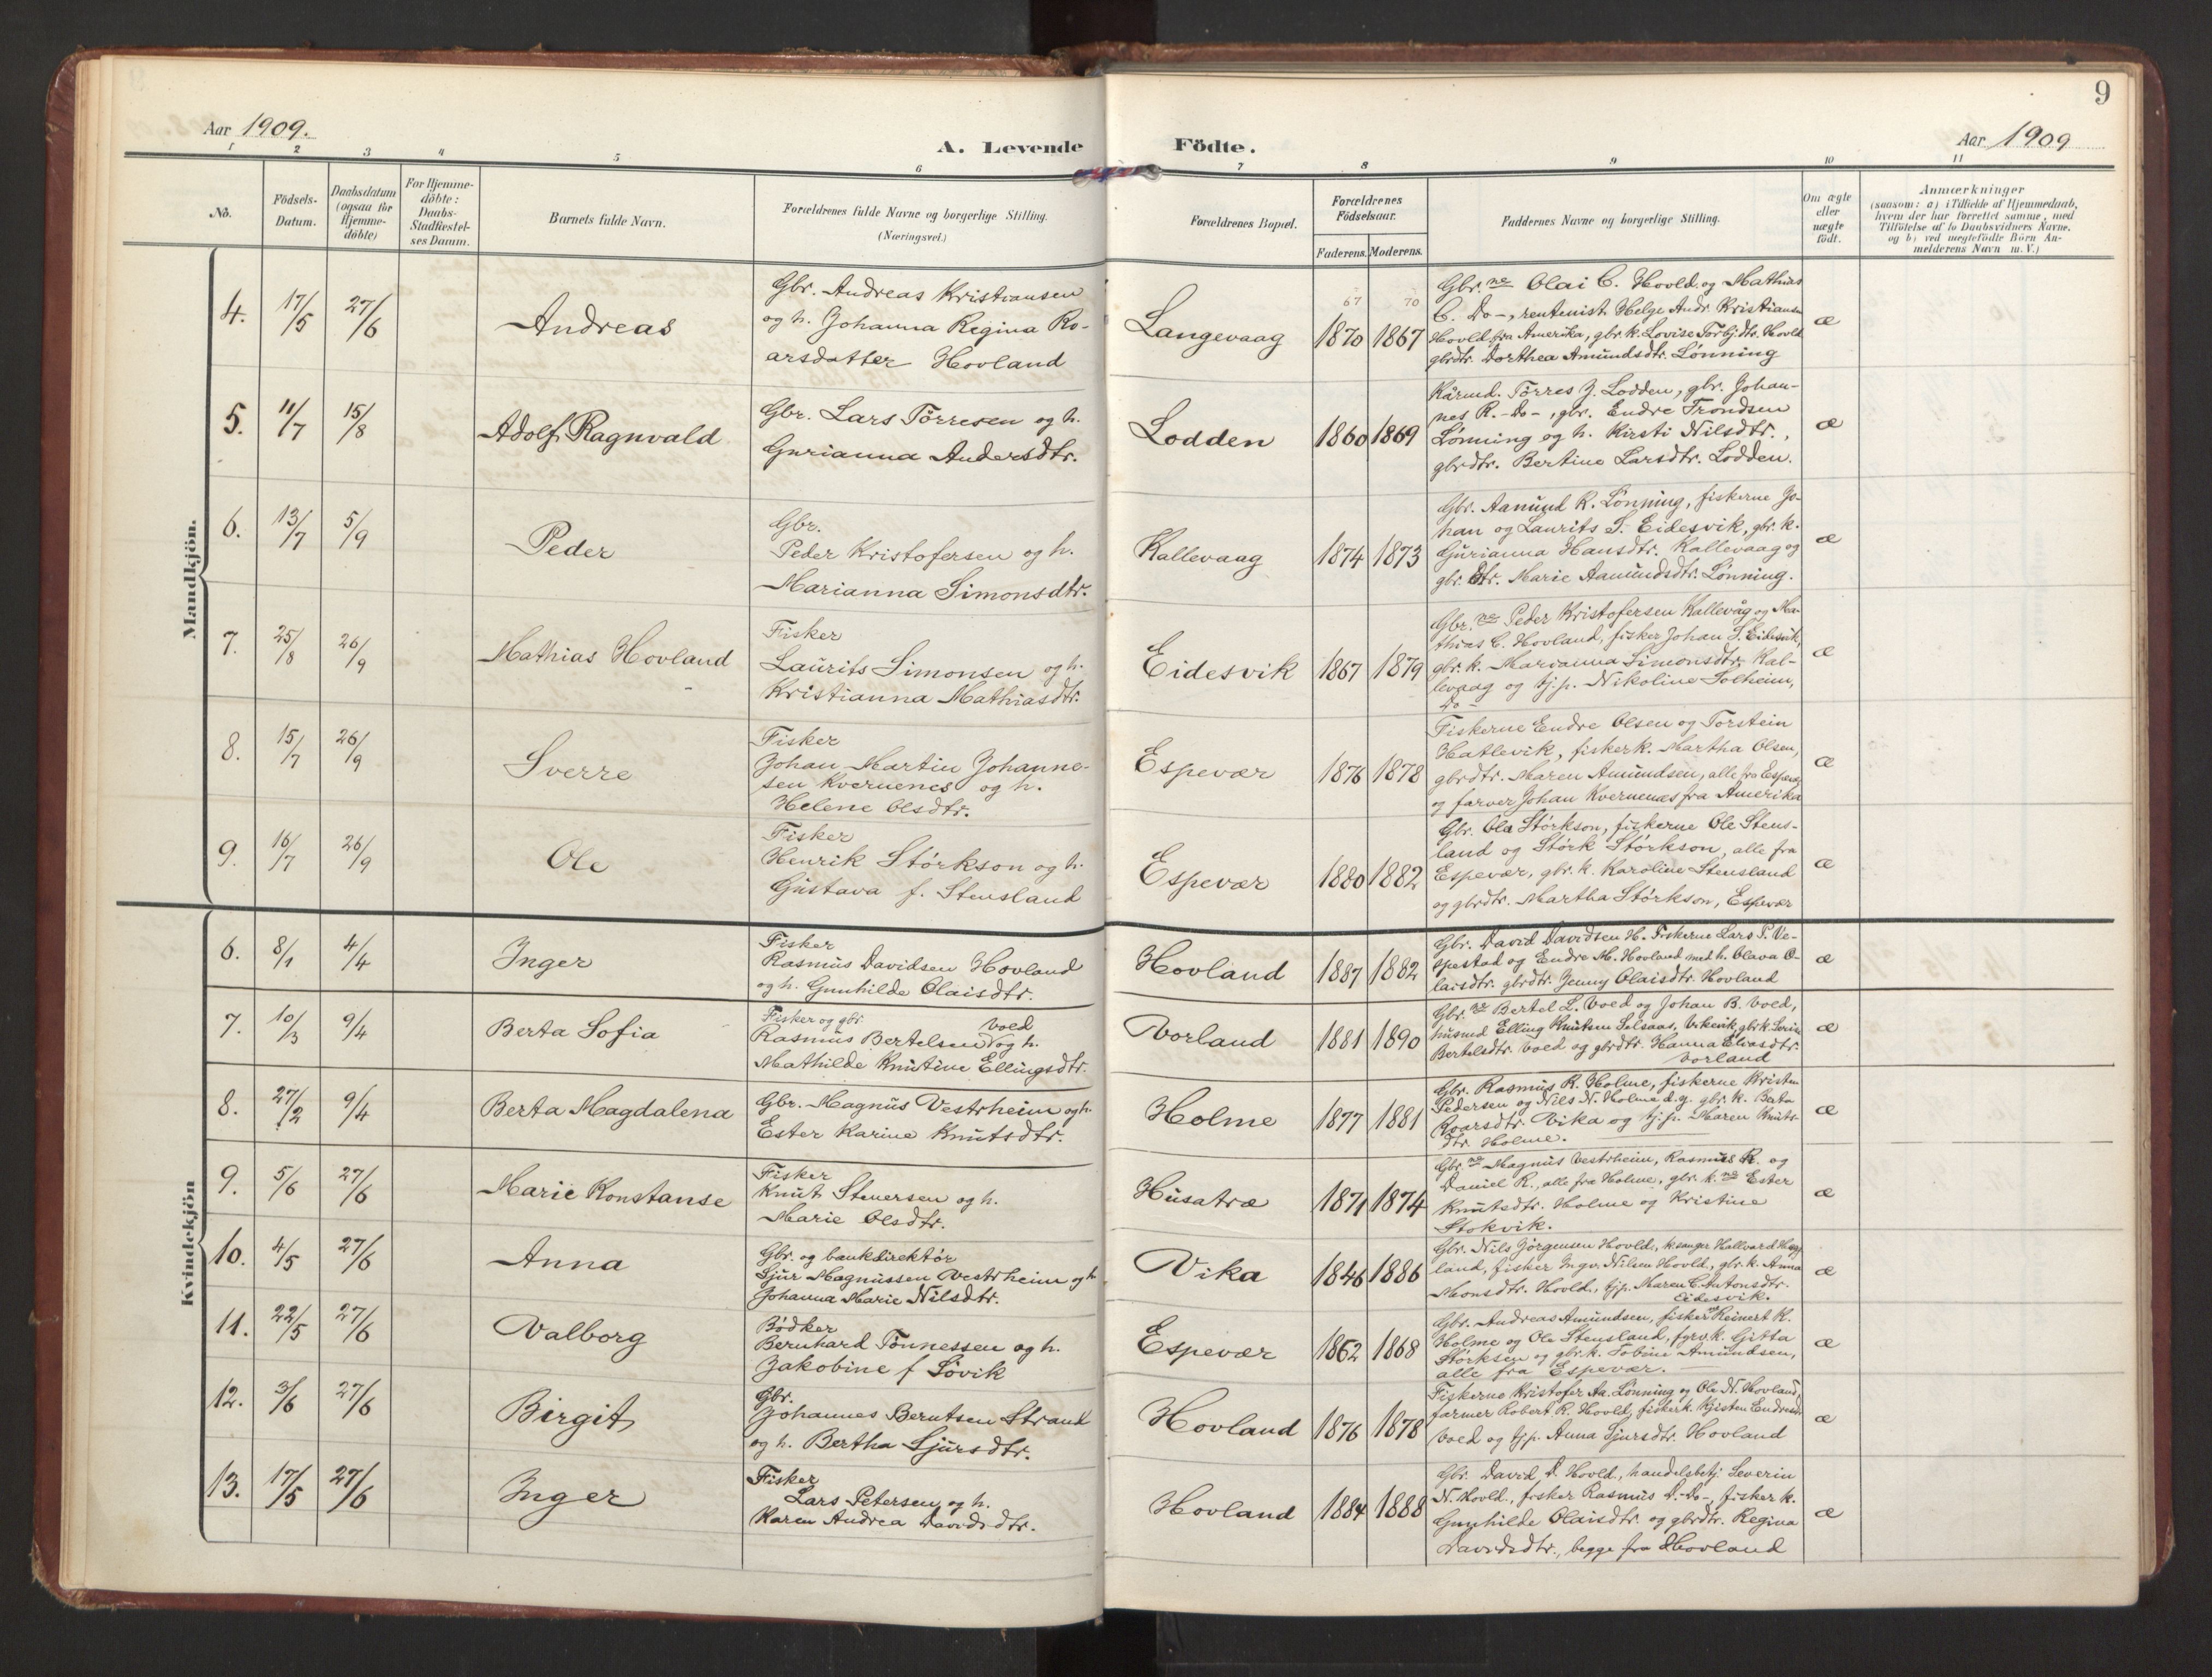 9
Aar 1909.
A. Levende Födte.
Aar 1909
1 2 3 4 5 6 7 8 9 10 11
No.
Födsels-
Datum.
Daabsdatum
(ogsaa for
Hjemme-
döbte)
For Hjemme-
döbte:
Daabs-
Stadfæstel-
ses Datum.
Barnets fulde Navn.
Forældrenes fulde Navne og borgerlige Stilling.
(Næringsvei.)
Forældrenes Bopæl.
Forældrenes
Födselsaar.
Faderens. Moderens.
Faddernes Navne og borgerlige Stilling.
Om ægte
eller
uægte
födt.
Anmærkninger
(saasom: a) i Tilfælde af Hjemmedaab,
hvem der har forrettet samme, med
Tilföielse af to Daabsvidners Navne,
og b) ved uægtefödte Börn An-
melderens Navn m. V.)
Mandkjön.
4. 17/5 27/6 Andreas
Gbr. Andreas Kristiansen
og h. Johanna Regina Ro-
arsdatter Hovland
Langevaag
67 70
1870 1867
Gbr.ne Olai C. Hovld. og Mathias
C. Do-, rentenist Helge Andr. Kristiansen
Hovld fra Amerika, gbr. k. Lovise Torbjdtr. Hovld
gbrdtr. Dorthea Amundsdtr. Lønning
æ
5. 11/7 15/8 Adolf Ragnvald
Gbr. Lars Tørresen og h.
Gurianna Andersdtr.
Lodden
1860 1869
Kårmd. Tørres J. Lodden, gbr. Johan-
nes R. -Do-, gbr. Endre Trondsen
Lønning og h. Kirsti Nilsdtr.,
gbrdtr. Bertine Larsdtr. Lodden.
æ
6. 13/7 5/9 Peder
Gbr.
Peder Kristofersen og h.
Marianna Simonsdtr.
Kallevaag
1874 1873
Gbr. Aamund K. Lønning, fiskerne Jo-
han og Laurits S. Eidesvik, gbr. k.
Gurianna Hansdtr. Kallevaag og
gbr. dtr. Marie Aamundsdtr. Lønning.
æ
7. 25/8 26/9 Mathias Hovland
Fisker
Laurits Simonsen og h.
Kristianna Mathiasdtr.
Eidesvik
1867 1879
Gbr.ne Peder Kristofersen Kallevåg og Ma-
thias C. Hovland, fisker Johan S. Eidesvik,
gbr. k. Marianna Simonsdtr. Kal-
levaag og tj.p. Nikoline Solheim,
Do-
æ
8. 15/7 26/9 Sverre
Fisker
Johan Martin Johanne-
sen Kvernenes og h.
Helene Olsdtr.
Espevær
1876 1878
Fiskerne Endre Olsen og Torstein
Hatlevik, fiskerk. Martha Olsen,
gbrdtr. Maren Amundsen, alle fra Espevær
og farver Johan Kvernenæs fra Amerika
æ
9. 16/7 26/9 Ole
Fisker
Henrik Størkson og h.
Gustava f. Stensland
Espevær
1880 1882
Gbr. Ola Størkson, fiskerne Ole Stens-
land og Størk Størkson, alle fra
Espevær, gbr. k. Karoline Stensland
og gbrdtr. Martha Størkson, Espevær
æ
Kvindekjön
6. 8/1 4/4 Inger
Fisker
Rasmus Davidsen Hovland
og h. Gunhilde Olaisdtr.
Hovland
1887 1882
Gbr. David Davidsen H. Fiskerne Lars P. Ve-
spestad og Endre M. Hovland med h. Olava O-
laisdtr. gbrdtr. Jenny Olaisdtr. Hovland
æ
7. 10/3 9/4 Berta Sofia
Fisker og gbr.
Rasmus Bertelsen Voed og h.
Mathilde Knutine Ellingsdtr.
Vorland
1881 1890
Gbr.ne Bertel L. Voed og Johan B. Voed,
husmd Elling Knutsen Selsaas, Vikevik, gbr. k. Serine
Bertelsdtr. Voed og gbrdtr. Hanna Eliasdtr.
Vorland
æ
8. 27/2 9/4 Berta Magdalena
Gbr. Magnus Vestrheim og h.
Ester Karine Knutsdtr.
Holme
1877 1881
Gbr. Rasmus R. Holme, fiskerne Kristen
Pedersen og Nils N. Holme d.y. gbr. k. Berta
Roarsdtr. Vika og tj.p. Maren Knuts-
dtr. Holme.
æ
9. 5/6 27/6 Marie Konstanse
Fisker
Knut Stenersen og h.
Marie Olsdtr.
Husatræ
1871 1874
Gbr.ne Magnus Vestrheim, Rasmus R. og
Daniel R., alle fra Holme, gbr. k.ne Ester
Knutsdtr. Holme og Kristine
Stokvik.
æ
10. 4/5 27/6 Anna
Gbr. og bankdirektør
Sjur Magnussen Vestrheim og h
Johanna Marie Nilsdtr.
Vika
1846 1886
Gbr. Nils Jørgensen Hovld., k.sanger Hallvard
land, fisker Ingv. Nilsen Hovld., gbr. k. Anna
Monsdtr. Hovld., tjp. Maren C. Antonsdtr.
Eidesvik.
æ
11. 22/5 27/6 Valborg
Bødker
Bernhard Tønnessen og h.
Jakobine f Løvik
Espevær
1862 1868
Gbr. Andreas Amundsen, fiskerne Reinert K.
Holme og Ole Stensland, fyrvk. Gitta
Størksen og gbr. k. Tobine Amundsen,
alle fra Espevær.
æ
12. 3/6 27/6 Birgit
Gbr.
Johannes Berntsen Strand
og h. Bertha Sjursdtr.
Hovland
1876 1878
Fiskerne Kristofer Aa. Lønning og Ole N. Hovland,
farmer Robert R. Hovld, fiskerk. Kjisten Endresdtr
Voed og tjp. Anna Sjursdtr. Hovland
æ
13. 17/5 27/6 Inger
Fisker
Lars Petersen og h.
Karen Andrea Davidsdtr.
Hovland
1884 1888
Gbr. David D. Hovld., handelsbetj. Severin
N. Hovld., fisker Rasmus D. -Do-, fisker k.
Gunhilde Olaisdtr. og gbrdtr. Regina
Davidsdtr., begge fra Hovland
æ